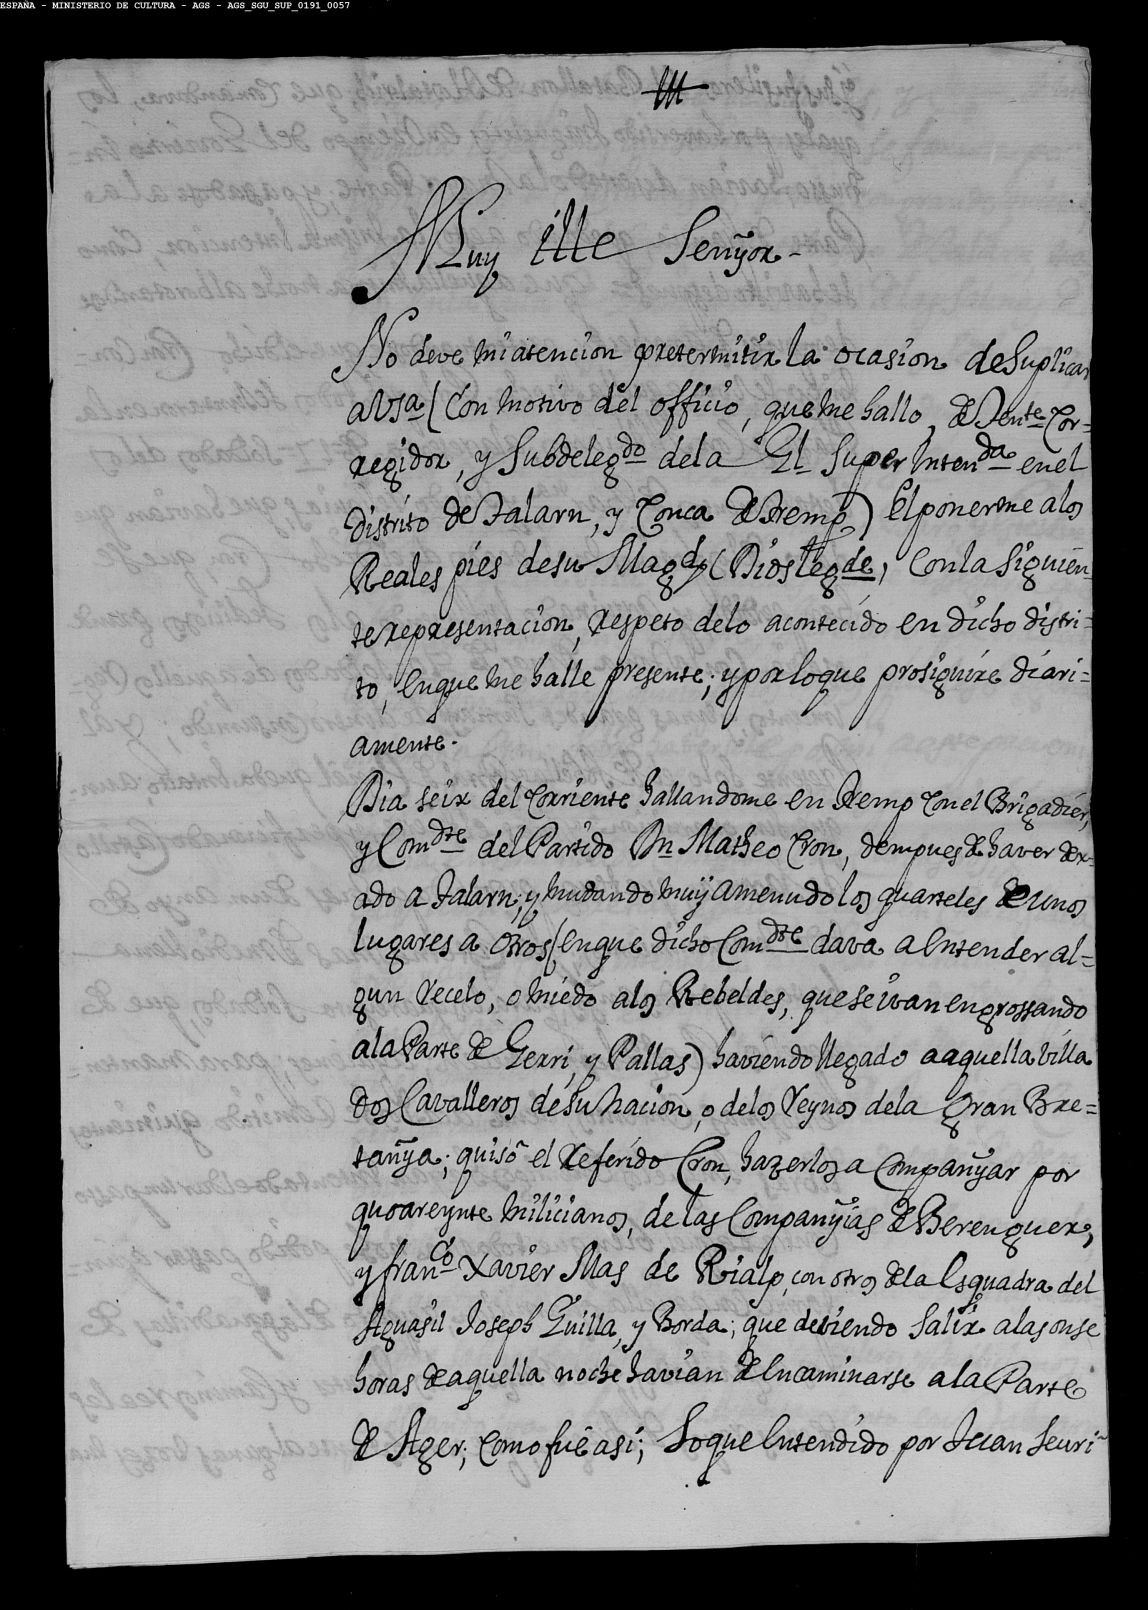 ESPAÑA - MINISTERIO DE CULTURA - AGS - AGS_SGU_SUP_0191_0057
Muy Ille Senÿor-
No deve mi atencion pretermitir la ocasion de Suplicar
a VSa (Con motivo del officio, que me hallo, de Tente Cor=
regidor, y Subdelegdo de la Gl Super Intenda en el
distrito de Talarn, y Conca de Tremp) El ponerme a los
Reales pies de su Magd (Dios le gde, Con la Siguien=
te representacion, respeto de lo acontecido en dicho distri=
to, en que me halle presente; y por lo que prosiguire diari=
amente.
Dia seix del Corriente hallandome en Tremp Con el Brigadier,
y Comdte del Partido Dn Matheo Cron, dempues de haver dex=
ado a Talarn; y mudando muÿ amenudo los quarteles de unos
lugares a otros (en que dicho Comdte dava a Entender al=
gun recelo, o miedo a los Rebeldes, que se ivan engrossando
a la Parte de Gerri, y Pallas) haviendo llegado a aquella Villa
dos Cavalleros de su nacion, o de los Reynos de la Gran Bre=
tanÿa; quisò el referido Cron, hazerlos a Companÿar por
quoareynte milicianos, de las Companÿias de Berenguer,
y Franco Xavier Mas de Rialp, con otros de la Esquadra del
Aguasil Joseph Guilla, y Borda; que deviendo Salir a las onse
horas de aquella noche havian de Encaminarse a la Parte
de Ager; como fuè asi; Lo que Entendido por Juan Seuri